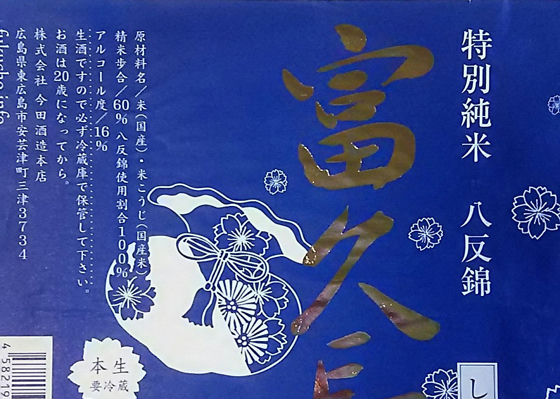 特別純米 八反錦
富久長
し
原材料名／米（国産）・米こうじ（国産米）
精米歩合／60% 八反錦使用割合100%
アルコール度／16%
生酒ですので必ず冷蔵庫で保管して下さい。
お酒は20歳になってから。
株式会社 今田酒造本店
広島県東広島市安芸津町三津3734
fukucho.info
本生
要冷蔵
4 58219